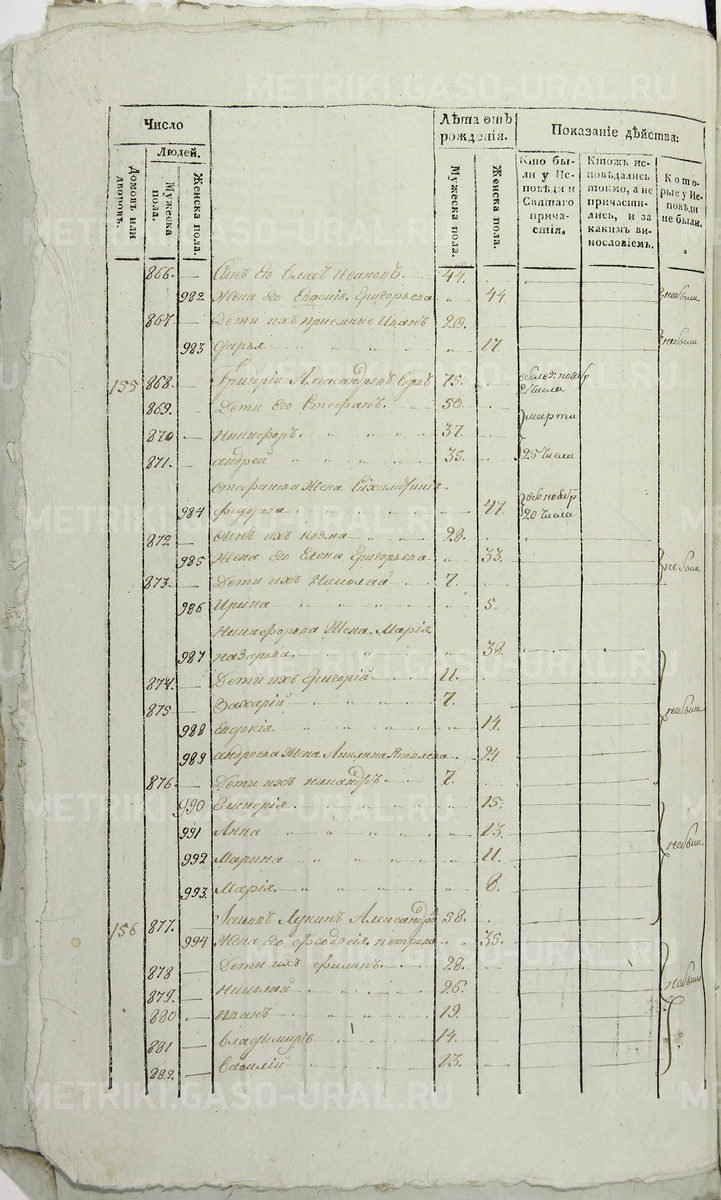 METRIKI.GASO-URAL.RU
Число
Людей.
Домовъ или дворовъ.
Мужеска пола.
Женска пола.
Лѣта отъ рожденія.
Мужеска пола.
Женска пола.
Показаніе дѣйства:
Кто были у Исповѣди и Святаго причастія.
Ктожъ исповѣдались токмо, а не причастились, и за какимъ винословіемъ.
Которые у Исповѣди не были.
866. Сынъ Иванов. 44.
982 Жена его Григорьева 44. небыли
867 Дети ихъ приемные Иванъ 20.
983 Дарья 17. небыли
155 868. Григорій Александровъ 75.
21 числа
869. Дети его Стефанъ 50. марта
870 Никифоръ. 37.
871. андрей 35. 25 числа
Стефанова Жена
984 федорова 47 20 числа
872. сынъ ихъ козма 28.
985 Жена его Елена Григорьева 33. небыли
873. Дети ихъ Николай 7.
986 Ирина 5.
Никифорова Жена Марія
987 назарова 38.
874. Дети ихъ Григорій 11.
875 Захарій 7. небыли
988 14.
989 андреева Жена Яковлева 24
876. Дети ихъ 7.
990 15.
991 Анна 13. небыли
992 Марина 11.
993. Марія 8.
156 877. Лукинъ 58.
994 Жена его феодосія петрова 35.
878 Дети ихъ филипъ 28. небыли
879. Николай 26.
880 Иванъ 19.
881 Владымиръ 14.
882. Василій 13.